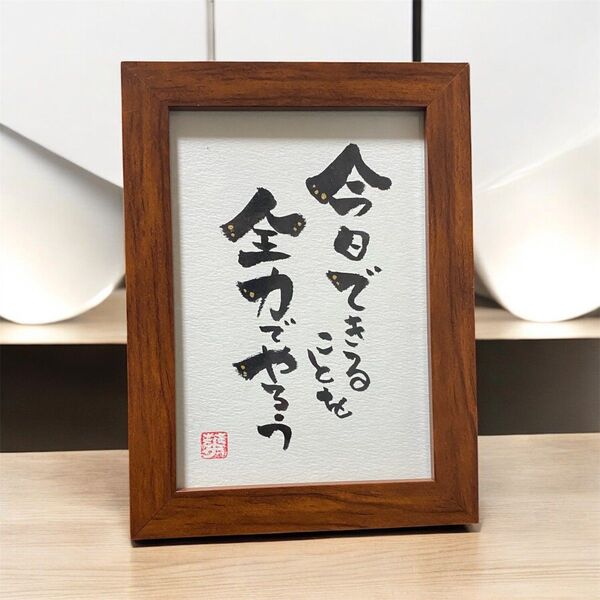 今日できることを
全力でやろう